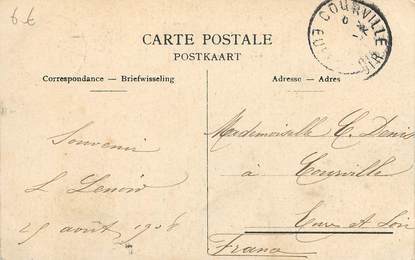 6 €
COURVILLE
CARTE POSTALE
POSTKAART
Correspondance — Briefwisseling
Adresse — Adres
Souvenir
L Lenoir
25 août 1908
Mademoiselle C. Denis
à
Courville
Eure et Loir
France